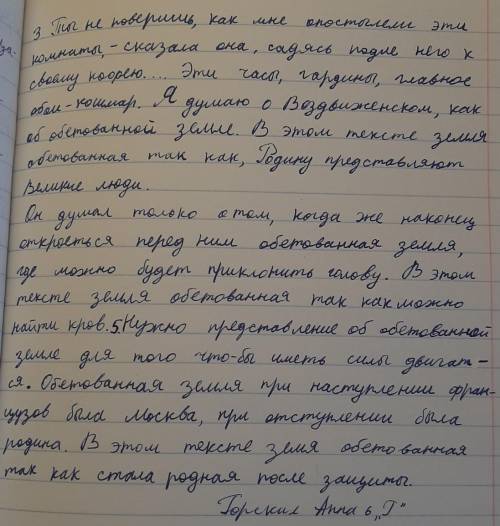 3. Ты не поверишь, как мне опостылели эти
комнаты, - сказала она, садясь подле него к
своему кофею.... Эти часы, гардины, главное
обои - кошмар. Я думаю о Воздвиженском, как
об обетованной земле. В этом тексте земля
обетованная так как, Родину представляют
великие люди.
Он думал только о том, когда же наконец
откроеться перед ним обетованная земля,
где можно будет приклонить голову. В этом
тексте земля обетованная так как можно
найти кров. 5. Нужно представление об обетованной
земле для того что-бы иметь силы двигат-
ся. Обетованная земля при наступлении фран-
цузов была Москва, при отступлении была
родина. В этом тексте земя обетованная
так как стала родная после защиты.
Горских Анна 6 „Г"